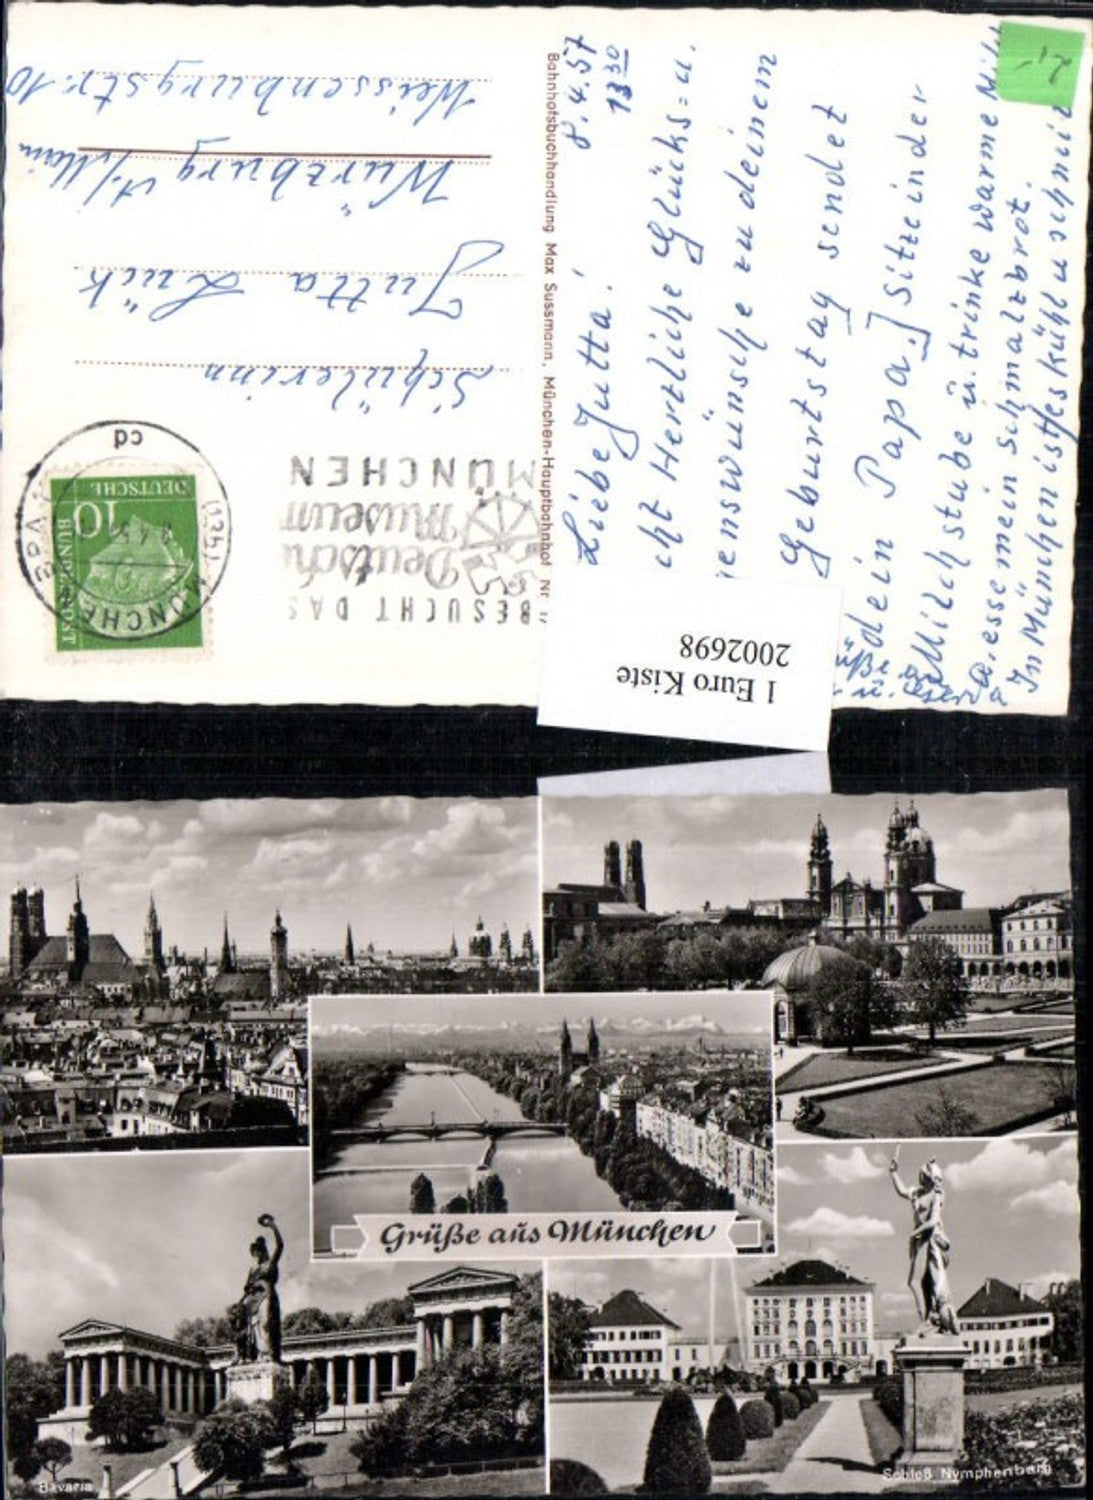 8.4.57
13 30
Liebe Jutta!
cht Herzliche Glücks= u.
enswünsche zu deinem
Geburtstag sendet
dein Papa.] Sitze in der
Milchstube u. trinke warme Milch
a. esse mein Schmalzbrot.
In München ist es kühl u schneit
2,-
Bahnhofsbuchhandlung Max Sussmann, München-Hauptbahnhof
BESUCHT DAS
Deutsche
Museum
MÜNCHEN
DEUTSCHE
BUNDESPOST
10
MÜNCHEN
cd
Schülerinn
Jutta Lück
Würzburg a/Main
Weissenburgstr. 10
1 Euro Kiste
2002698
Grüße aus München
Bavaria
Schloß Nymphenburg